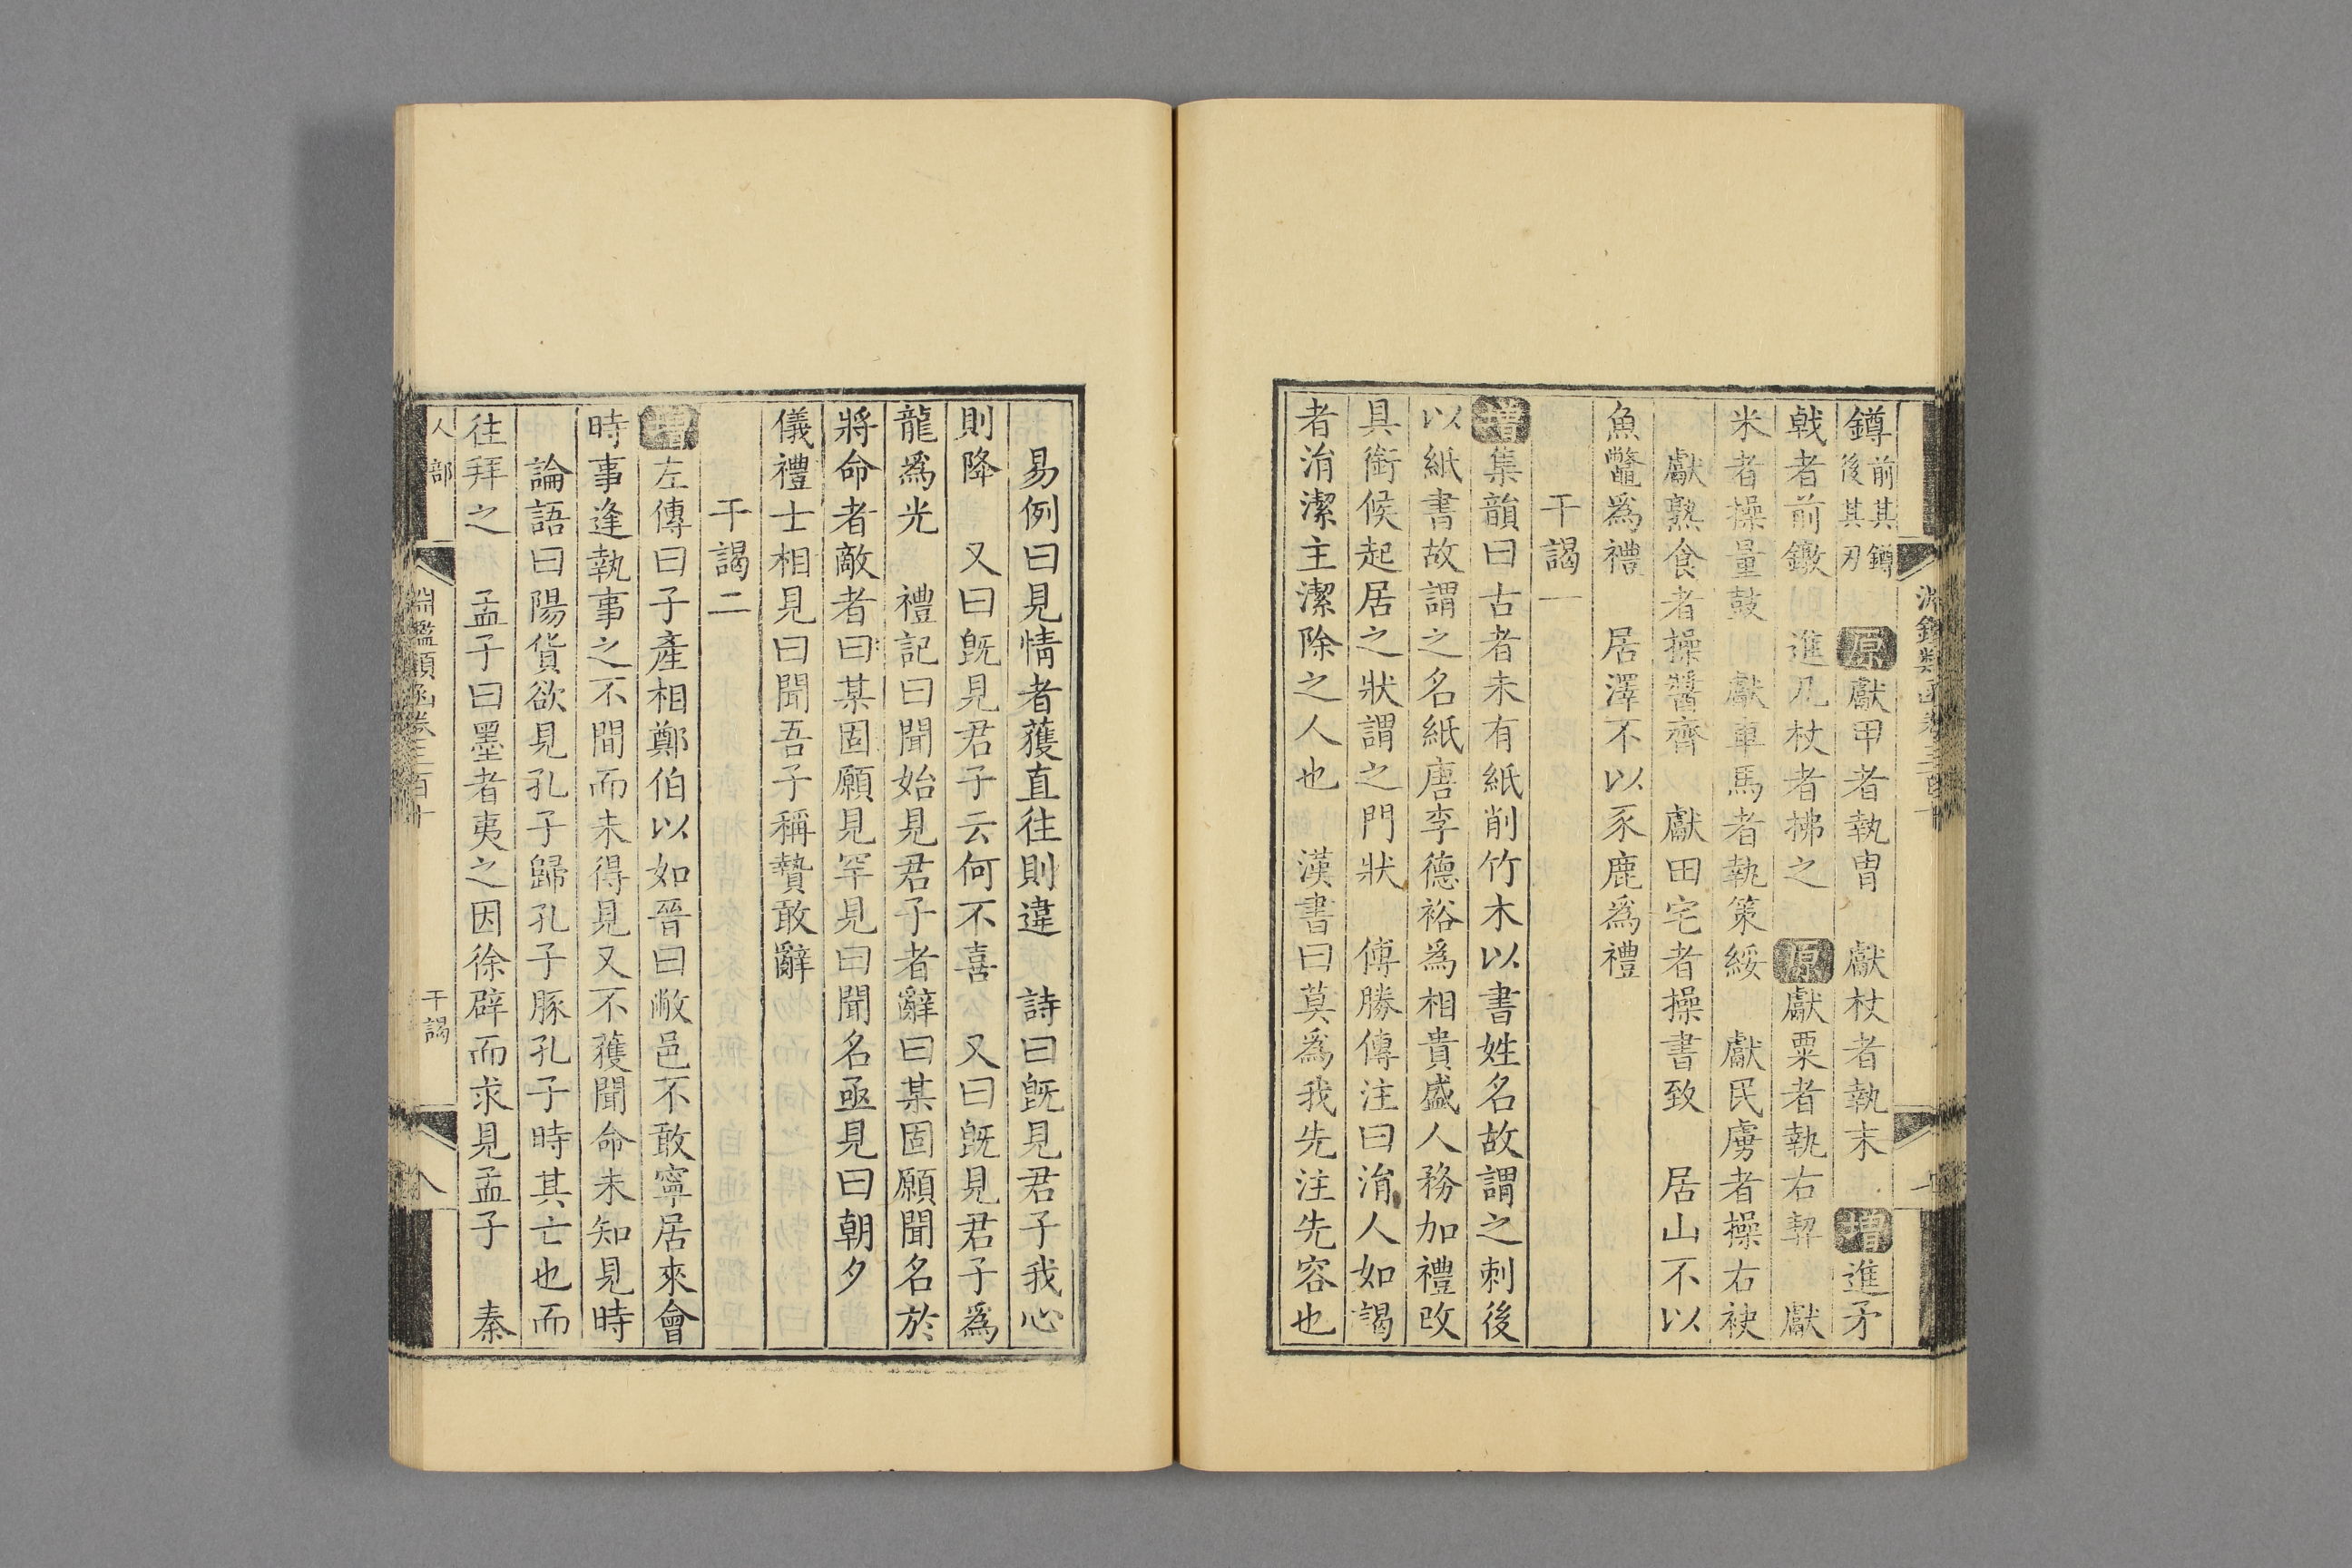 鐏前其鐏後其刃原獻甲者執冑獻杖者執末增進矛
戟者前鐓進几杖者拂之原獻粟者執右契獻
米者操量鼓獻車馬者執策綏獻民虜者操右袂
獻熟食者操醬齊獻田宅者操書致居山不以
魚鼈爲禮居澤不以豕鹿爲禮
干謁一
增集韻曰古者未有紙削竹木以書姓名故謂之刺後
以紙書故謂之名紙唐李德裕爲相貴盛人務加禮改
具銜候起居之狀謂之門狀傅勝傳注曰涓人如謁
者涓潔主潔除之人也漢書曰莫爲我先注先容也
淵鑑類函卷三百十
易例曰見情者獲直往則違詩曰旣見君子我心
則降又曰旣見君子云何不喜又曰旣見君子爲
龍爲光禮記曰聞始見君子者辭曰某固願聞名於
將命者敵者曰某固願見罕見曰聞名亟見曰朝夕
儀禮士相見曰聞吾子稱贄敢辭
干謁二
增左傳曰子產相鄭伯以如晉曰敝邑不敢寧居來會
時事逢執事之不間而未得見又不獲聞命未知見時
論語曰陽貨欲見孔子歸孔子豚孔子時其亡也而
往拜之孟子曰墨者夷之因徐辟而求見孟子秦
人部
淵鑑類函卷三百十
干謁
八